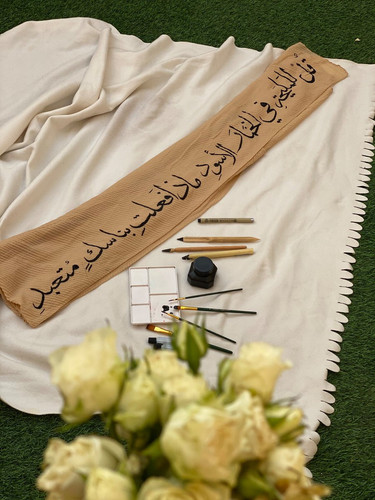 قل للمليحة في الخمار الأسود ماذا فعلتِ بناسكٍ متعبد